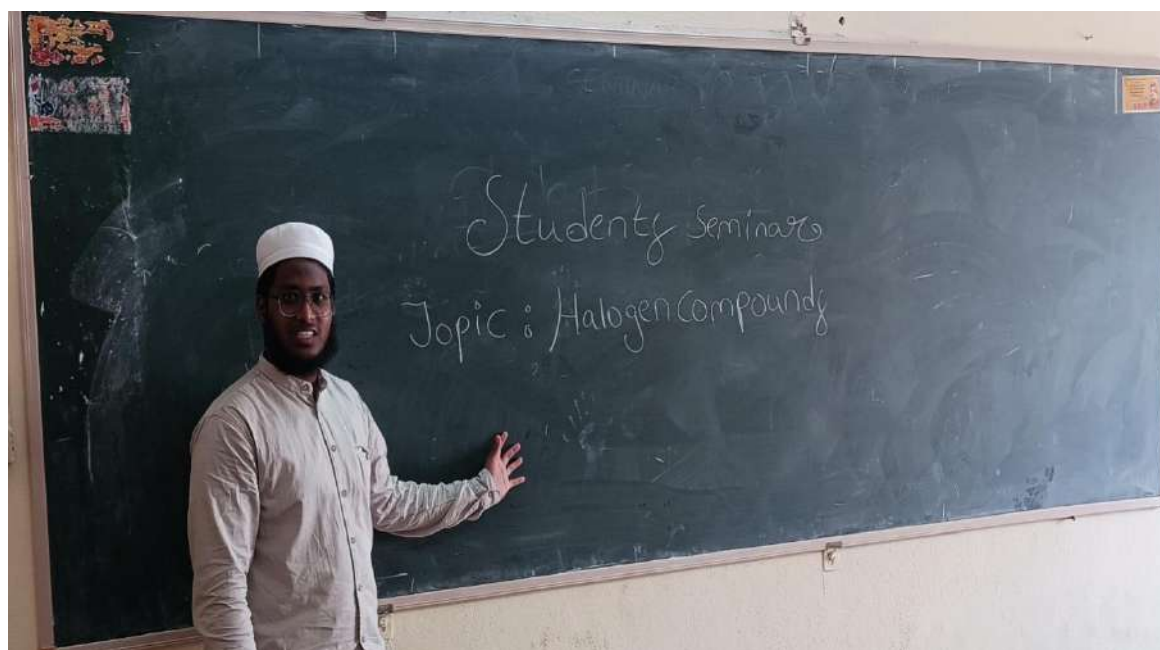 Students Seminar
Topic : Halogen Compounds